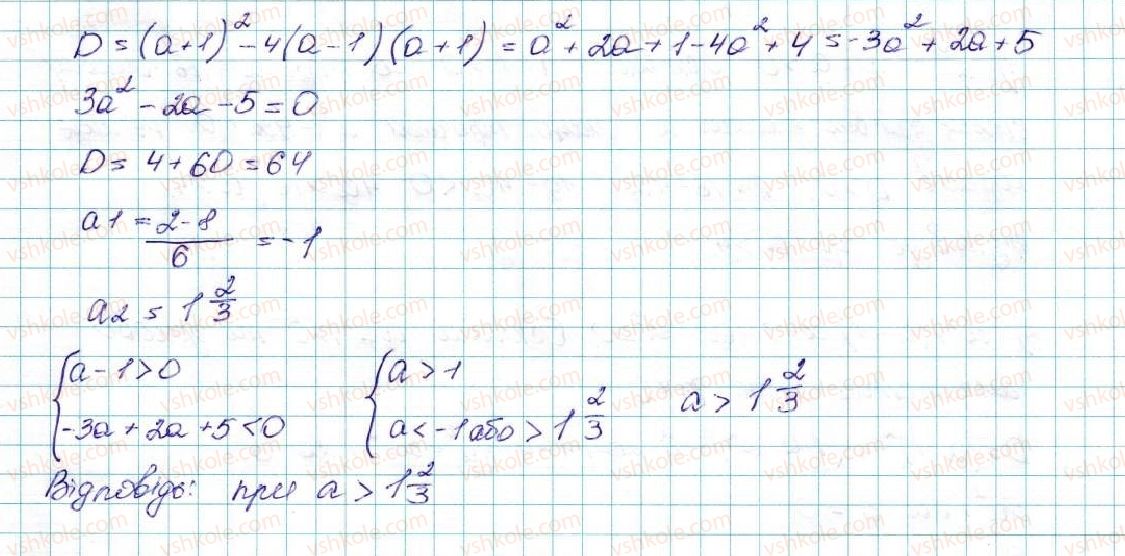 D = (a+1)² - 4(a-1)(a+1) = a² + 2a + 1 - 4a² + 4 = -3a² + 2a + 5
3a² - 2a - 5 = 0
D = 4 + 60 = 64
a1 = (2-8)/6 = -1
a2 = 1 2/3
{ a - 1 > 0 { a > 1
{ -3a + 2a + 5 < 0 { a < -1 або > 1 2/3 a > 1 2/3
Відповідь: при a > 1 2/3